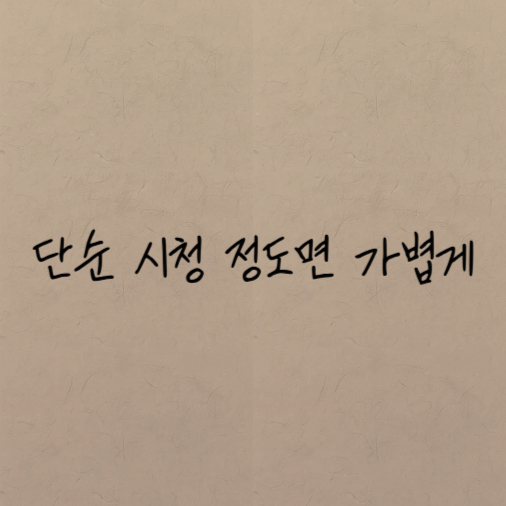 단순 시청 정도면 가볍게